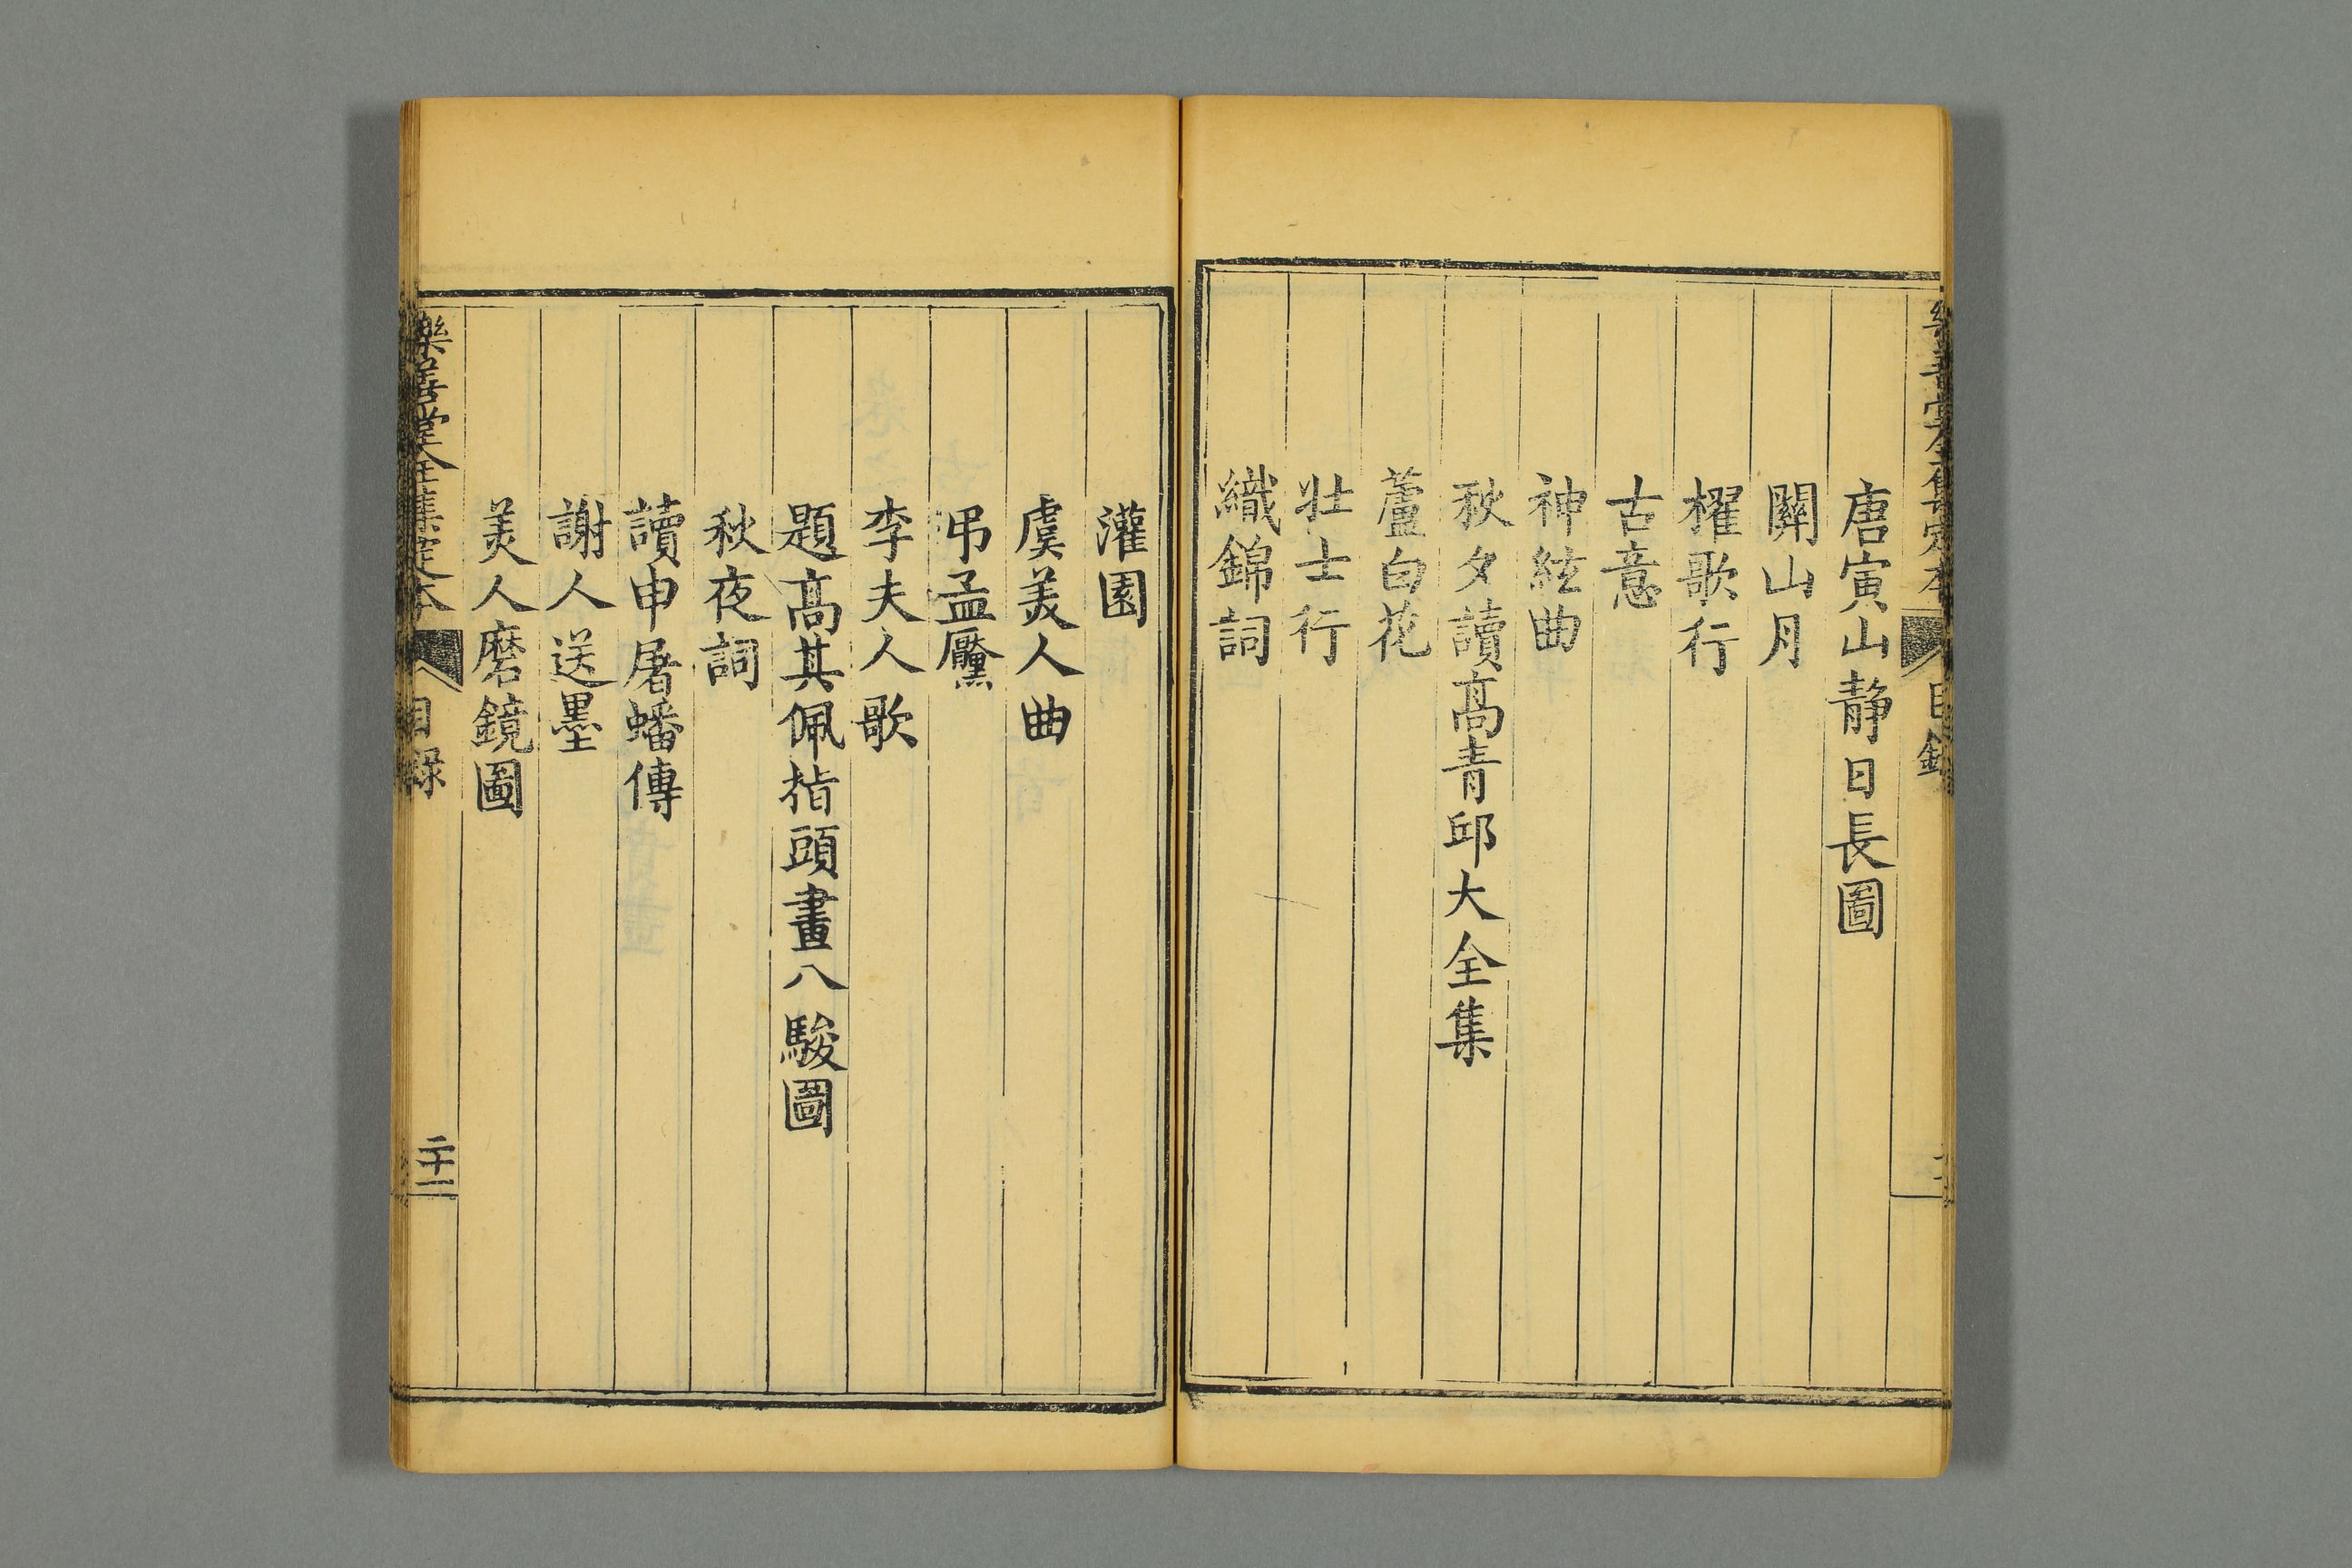 唐寅山静日長圖
關山月
櫂歌行
古意
神絃曲
秋夕讀髙青邱大全集
蘆白花
壮士行
織錦詞
灌園
虞美人曲
弔孟黶
李夫人歌
題髙其佩指頭畫八駿圖
秋夜詞
讀申屠蟠傳
謝人送墨
美人磨鏡圖
樂善堂全集定本
目録
二十一